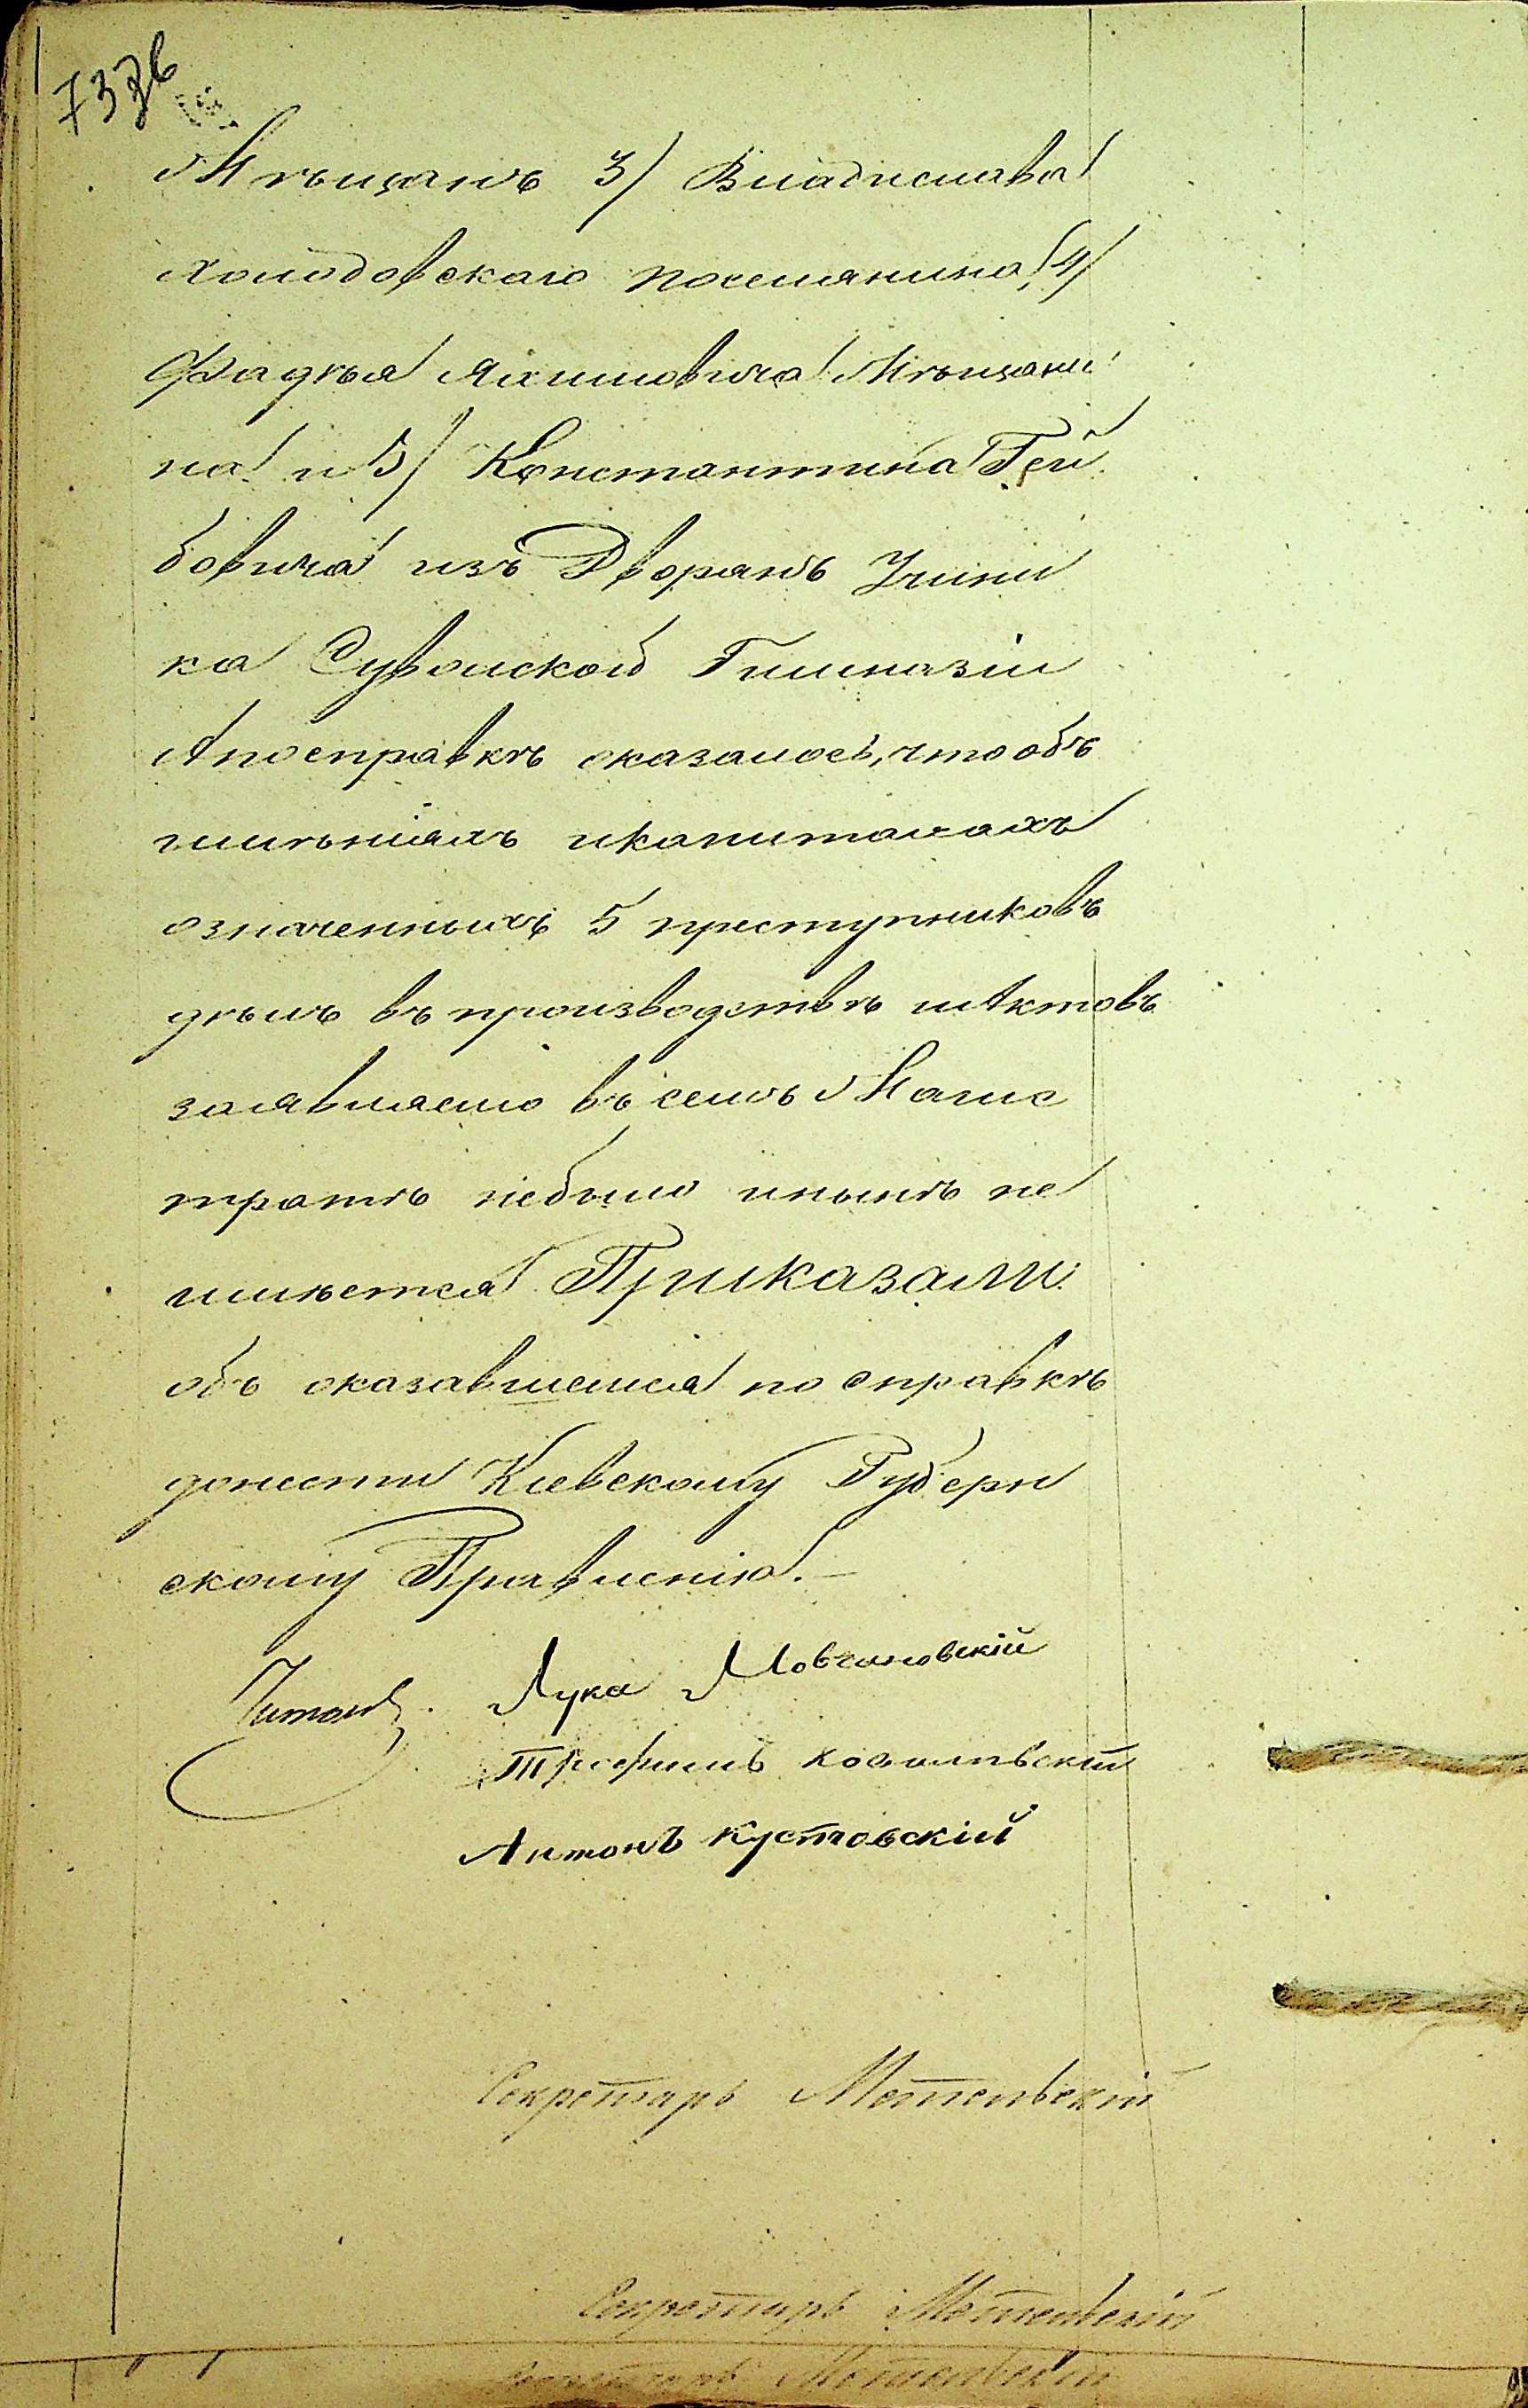 737б
Мѣщанъ 3/ Владислава
Холодовскаго поселянина, 4/
Фадѣя Яхимовича Мѣщани
на и 5/ Константина Гей
бовича изъ Дворянъ Учени
ка Сувалской Гимназіи
А по справкѣ оказалось, что объ
имѣніяхъ и капиталахъ
означенныхъ 5 преступниковъ
дѣлъ въ производствѣ и Актовъ
заявляемо въ семъ Магис
тратѣ небыло и нынѣ не
имѣется Приказали:
объ оказавшемся по справкѣ
донести Кіевскому Губерн
скому Правленію.—
Читалъ. Лука Мовчановскій
Трофимъ Ковалевскій
Антонъ Кустовскій
Секретарь Метельскій
Секретарь Метельскій
Секретарь Метельскій